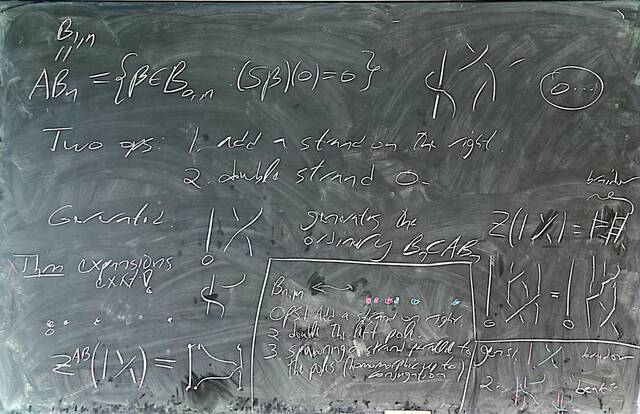 B_{1,n}
AB_n = {β∈B_{0,n} : (Sβ)(0)=0}
0...
Two ops: 1. add a strand on the right.
2. double strand 0.
Generated:
0
generates the
ordinary B_n⊂AB_n
Z(1X)=
Thm expansions
exist!
0
=
0
0
B_{n,m} ↔
OPS1 Add a strand on right
2 double the left pole
3. spawning a strand parallel to
the poles (homomorphic up to)
conjugation
Z^{AB}(1X) =
gens 1.
2.